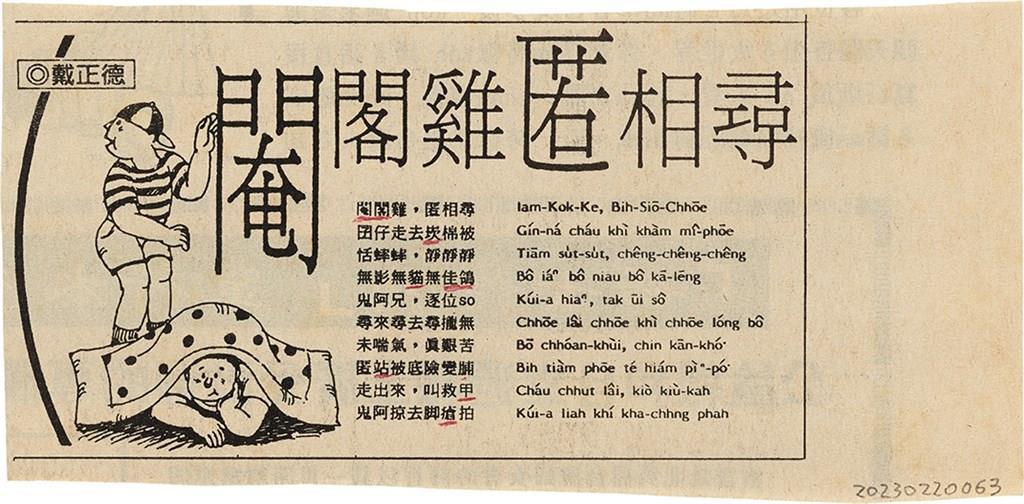 ◎戴正德
閹閣雞匿相尋
閹閣雞，匿相尋 Iam-Kok-Ke, Bih-Siō-Chhōe
囝仔走去崁棉被 Gín-ná cháu khì khàm mî-phōe
恬蟀蟀，靜靜靜 Tiām su̍t-su̍t, chēng-chēng-chēng
無影無貓無佳鴿 Bô iáⁿ bô niau bô kā-lēng
鬼阿兄，逐位so Kúi-a hiaⁿ, tak ūi sô
尋來尋去尋攏無 Chhōe lâi chhōe khì chhōe lóng bô
未喘氣，眞艱苦 Bō chhóan-khùi, chin kān-khó͘
匿站被底險變脯 Bih tiàm phōe té hiám pìⁿ-pó͘
走出來，叫救甲 Cháu chhut lâi, kiò kiù-kah
鬼阿掠去脚瘡拍 Kúi-a liah khí kha-chhng phah
20230220063